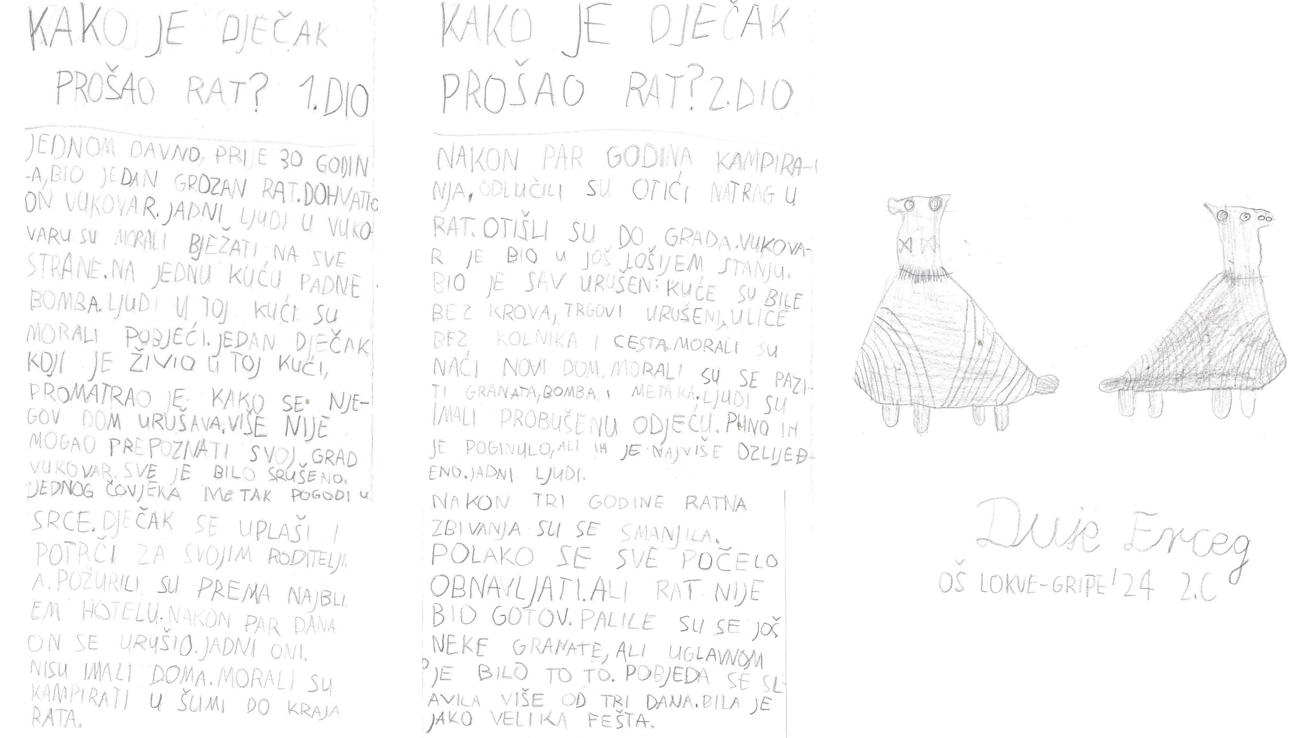 KAKO JE DJEČAK
PROŠAO RAT? 1.DIO
JEDNOM DAVNO, PRIJE 30 GODIN
-A, BIO JEDAN GROZAN RAT. DOHVATIO
ON VUKOVAR. JADNI LJUDI U VUKO-
VARU SU MORALI BJEŽATI NA SVE
STRANE. NA JEDNU KUĆU PADNE
BOMBA. LJUDI U TOJ KUĆI SU
MORALI POBJEĆI. JEDAN DJEČAK
KOJI JE ŽIVIO U TOJ KUĆI,
PROMATRAO JE KAKO SE NJE-
GOV DOM URUŠAVA. VIŠE NIJE
MOGAO PREPOZNATI SVOJ GRAD
VUKOVAR. SVE JE BILO SRUŠENO.
JEDNOG ČOVJEKA METAK POGODI U
SRCE. DJEČAK SE UPLAŠI I
POTRČI ZA SVOJIM RODITELJI
A. POŽURILI SU PREMA NAJBLI
EM HOTELU. NAKON PAR DANA
ON SE URUŠIO. JADNI ONI.
NISU IMALI DOMA. MORALI SU
KAMPIRATI U ŠUMI DO KRAJA
RATA.
KAKO JE DJEČAK
PROŠAO RAT? 2.DIO
NAKON PAR GODINA KAMPIRA-
NJA, ODLUČILI SU OTIĆI NATRAG U
RAT. OTIŠLI SU DO GRADA. VUKOVA-
R JE BIO U JOŠ LOŠIJEM STANJU.
BIO JE SAV URUŠEN: KUĆE SU BILE
BEZ KROVA, TRGOVI URUŠENI, ULICE
BEZ KOLNIKA I CESTA. MORALI SU
NAĆI NOVI DOM. MORALI SU SE PAZI-
TI GRANATA, BOMBA, I METAKA. LJUDI SU
IMALI PROBUŠENU ODJEĆU. PUNO IH
JE POGINULO, ALI IH JE NAJVIŠE OZLIJEĐ-
ENO. JADNI LJUDI.
NAKON TRI GODINE RATNA
ZBIVANJA SU SE SMANJILA.
POLAKO SE SVE POČELO
OBNAVLJATI. ALI RAT NIJE
BIO GOTOV. PALILE SU SE JOŠ
NEKE GRANATE, ALI UGLAVNOM
JE BILO TO TO. POBJEDA SE SL-
AVILA VIŠE OD TRI DANA. BILA JE
JAKO VELIKA FEŠTA.
Duje Erceg
OŠ LOKVE-GRIPE '24 2.C